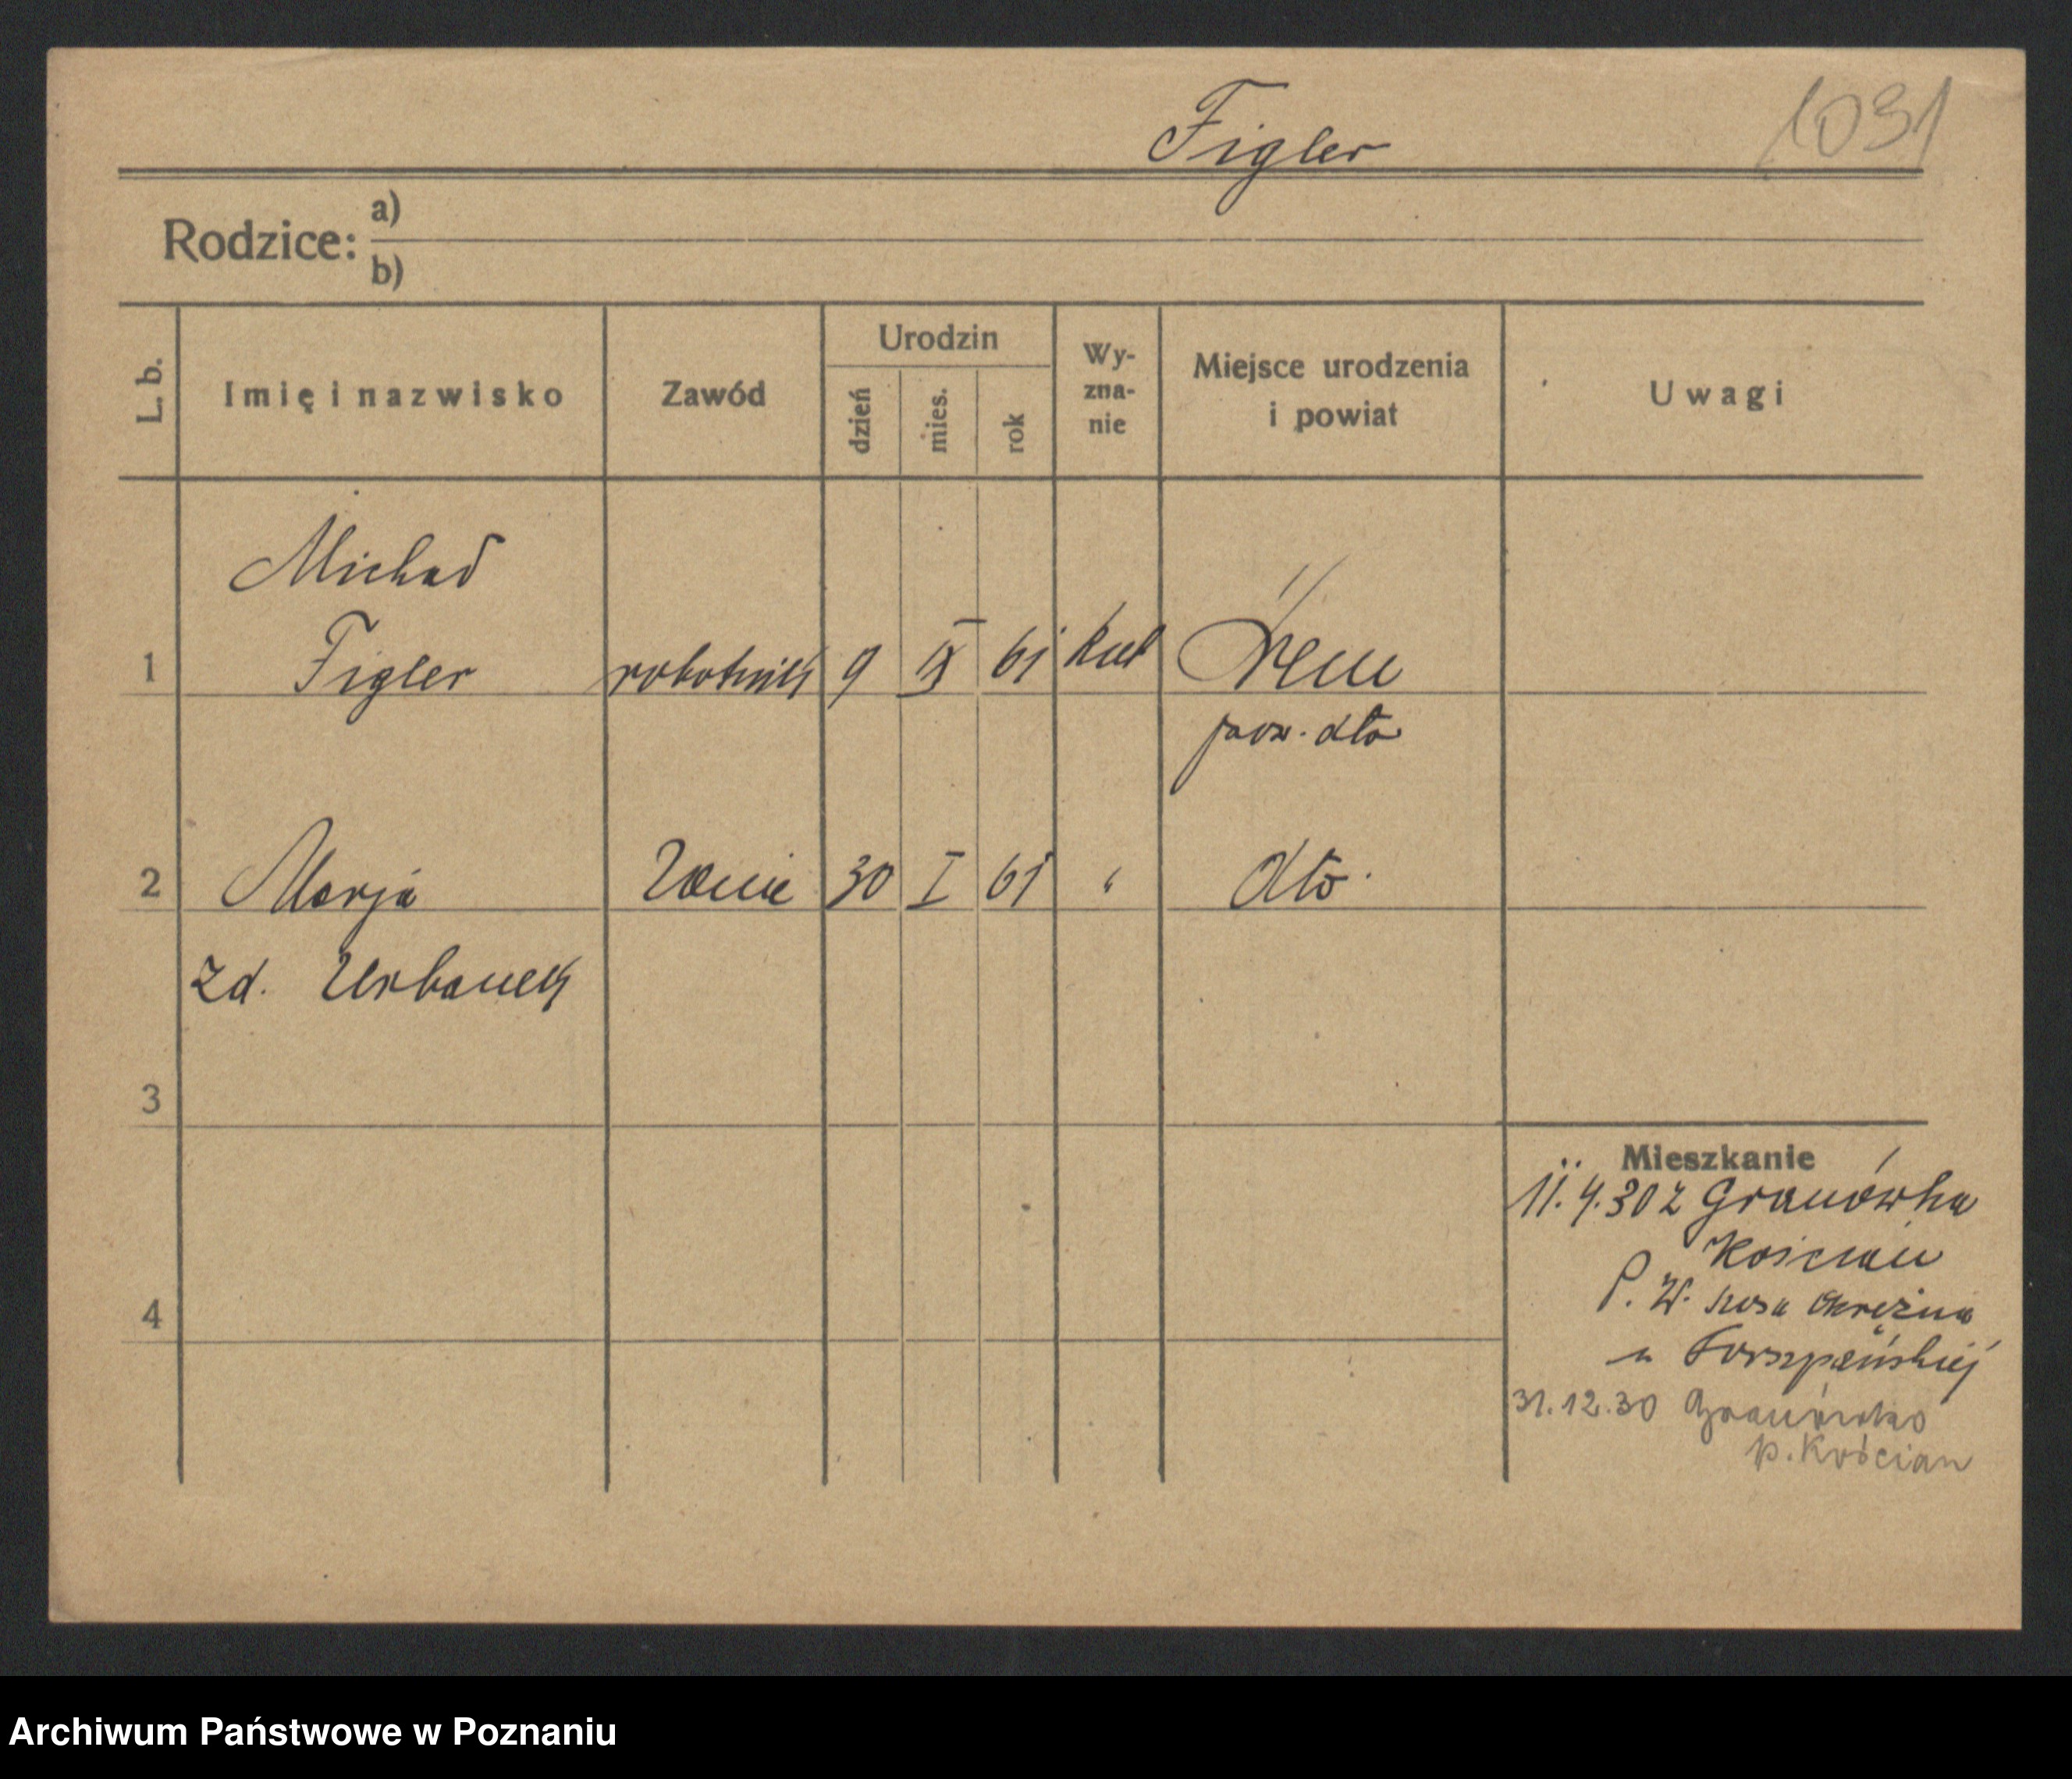 Figler
1031
Rodzice: a)
b)
L. b.
Imię i nazwisko
Zawód
Urodzin
dzień
mies.
rok
Wy-
zna-
nie
Miejsce urodzenia
i powiat
Uwagi
Michał
1 Figler robotnik 9 IX 61 kat Śrem
pow. dto
2 Marja żona 30 I 61 " dto.
zd. Urbanek
3
4
Mieszkanie
11.4.30 z Granówka
Kościan
P. W. szosa okrężna
Forszpańskiej
31.12.30 Granówko
p. Kościan
Archiwum Państwowe w Poznaniu